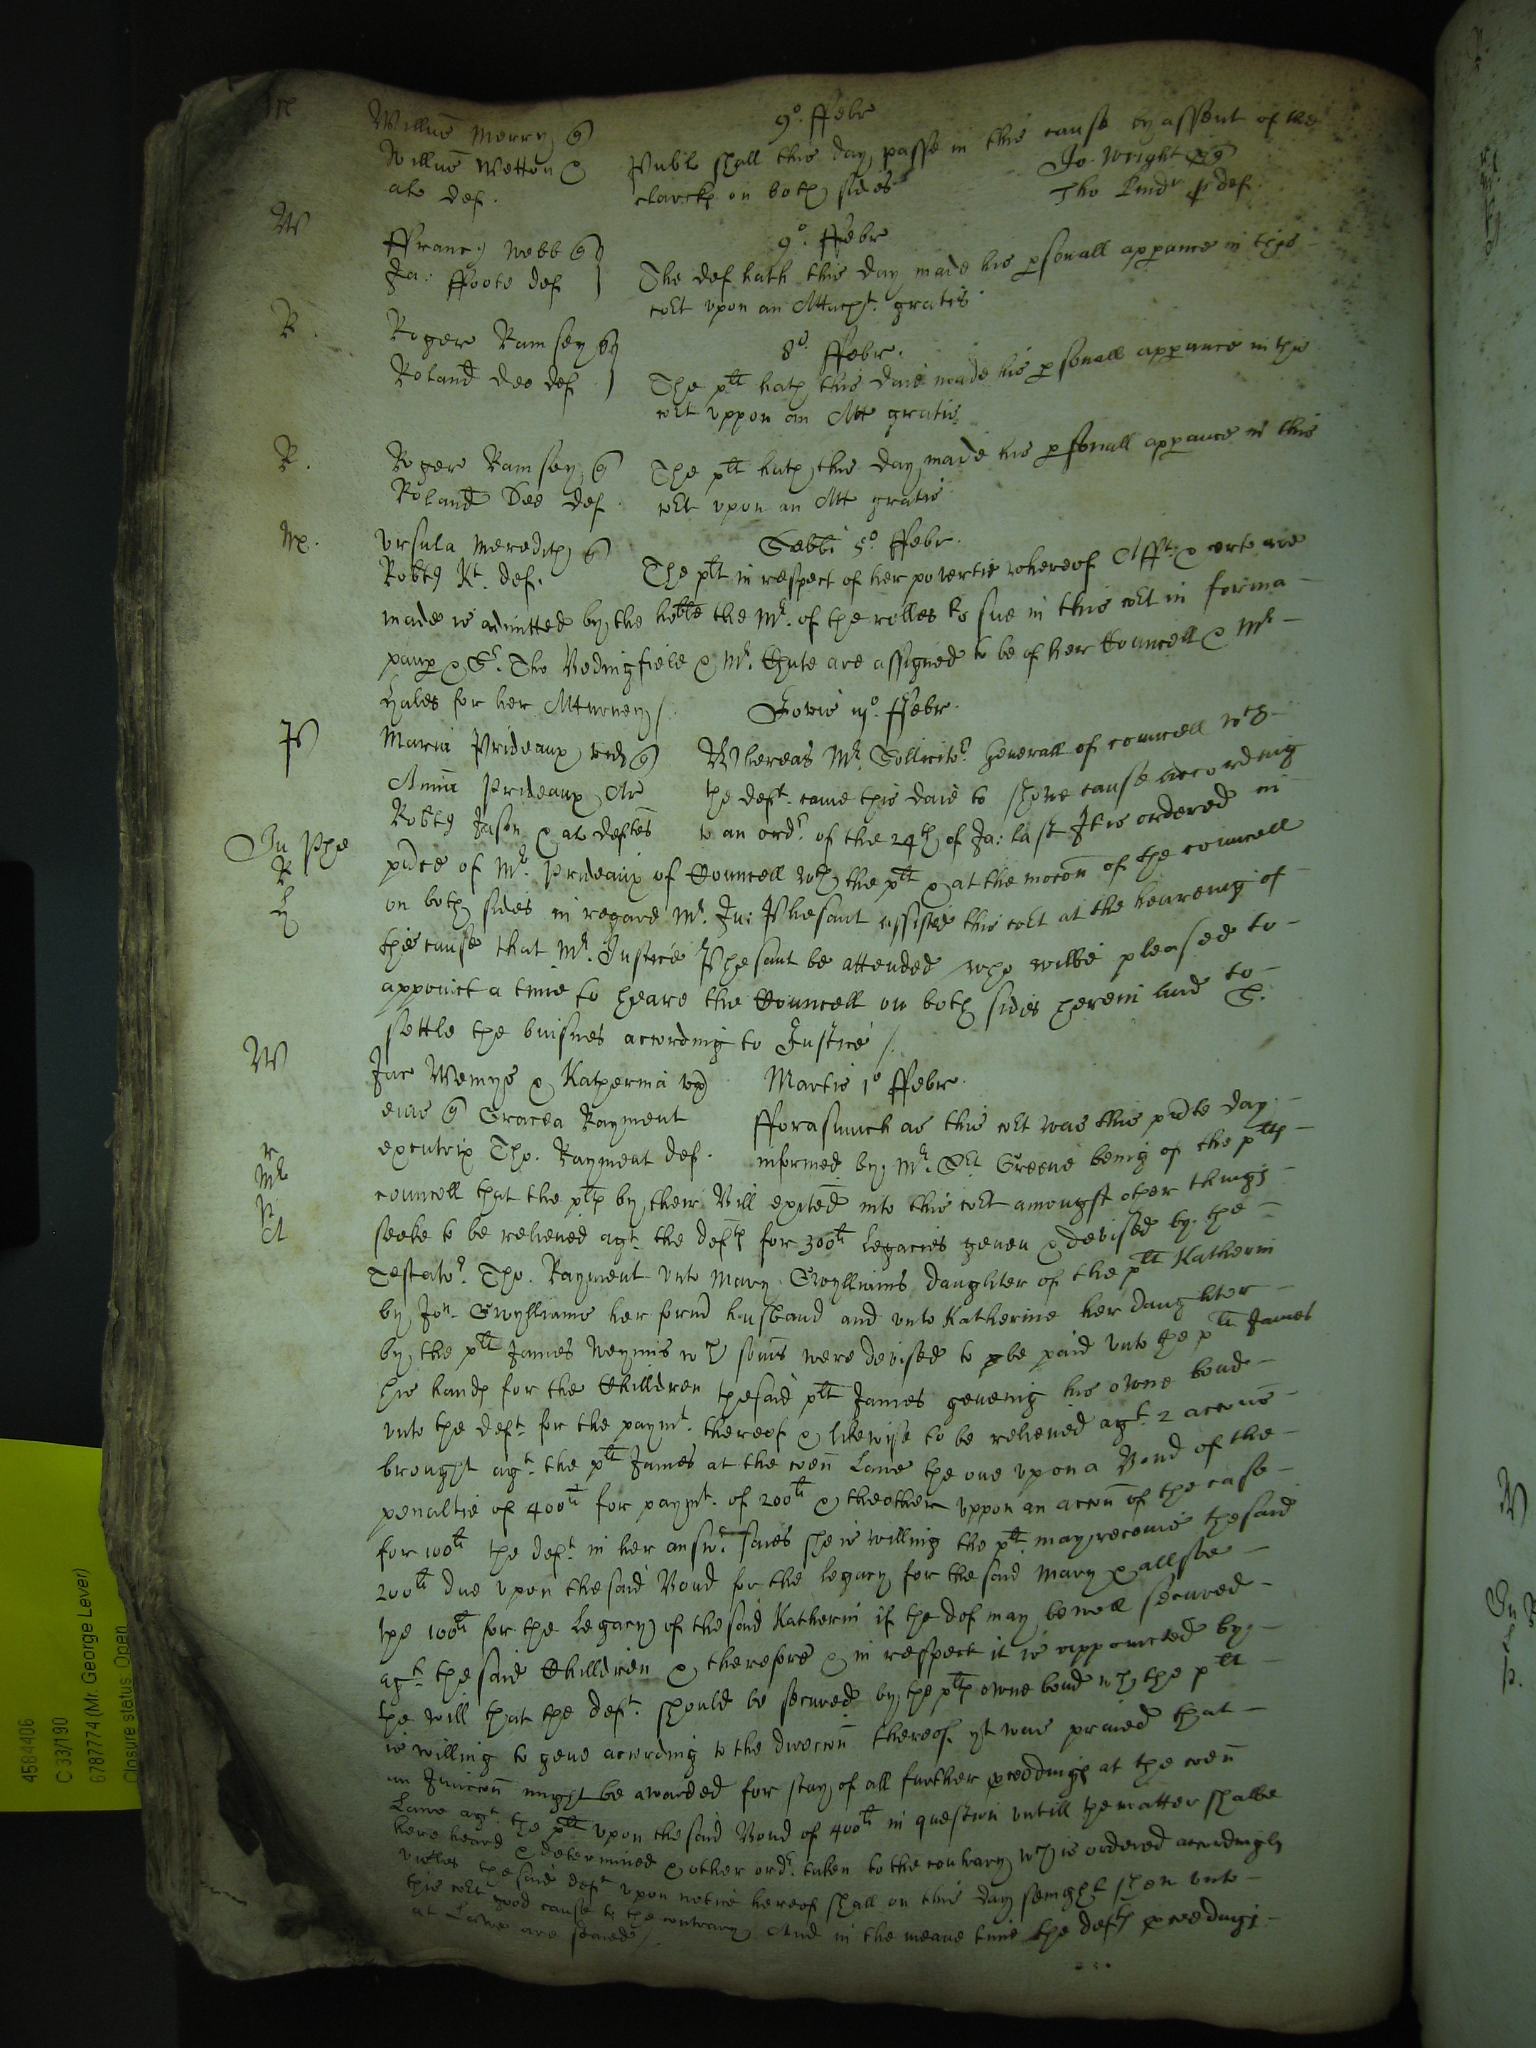 9o. ffebr
Willm̄ Merry q
Willm̄ Wetton & Publ shall this day passe in this cause by assent of the
als def. clarck on both sides Jo. Wright q
Tho def.
W
9o. ffebr
ffranc Webb q
Ja: ffoote def The def hath this day made his psonall appance in this
coRt vpon an Attachmt. gratis
R.
Roger Ramsey q 8o. ffebr.
Roland Dee def The plt hath this daie made his psonall appance in this
coRt vppon an Att gratis.
R.
Roger Ramsey q The plt hath this day made his psonall appance in this
Roland Dee def coRt vpon an Att gratis
Me.
Vrsula Meredith q Sabbti 5o. ffebr.
Robt Kt. def. The plt in respect of her povertie whereof Afft. & certe are
made is admitted by the hoble the Mr. of the rolles to sue in this coRt in forma
paup & Sr. Tho Bedingfield & Mr. Chute are assigned to be of her Councell & Mr
Hales for her Atturney / Jovis 3o. ffebr.
P
Maria Prideaux vid q Whereas Mr. Sollicitor. Generall of councell wth
Anna Prideaux Ar the deft. came this daie to shewe cause according
Robt Jason & als deftes to an ordr. of the 24th of Ja: last It is ordered in
In Phe
pñce of Mr. Prideaux of Councell wth the plt & at the mocon of the councell
R
on both sides in regard Mr. Ju: Phesant assisted this coRt at the hearing of
H
the cause that Mr. Justice Phesant be attended who wilbe pleased to
appoint a time to heare the Councell on both sides herein and to
settle the buisnes according to Justice /.
W
Jac Wemys & Katherina vx Martis 1o ffebr.
eius q Gracea Rayment fforasmuch as this coRt was this pñte day
executrix Tho. Rayment def. informed by Mr. Srt Greene being of the plts
councell that the plts by their Bill exited into this coRt amongst other things
seeke to be relieued agt. the defts for 300li Legacies geuen & devised by the
Testator. Tho. Rayment vnto Mary Gwylliams daughter of the plt Katherin
by Jon. Gwylliams her formd husband and vnto Katherine her daughter
by the plt James Weymis wch soms were devised to be paid vnto the plt James
his hands for the Children the said plt James geueing his owne bond
vnto the deft. for the paymt. thereof & likewise to be relieued agt. 2 accons
brought agt. the plt James at the coen Lawe the one vpon a Bond of the
penaltie of 400li for paymt. of 200li & the other vppon an accon of the case
for 100li the deft. in her answr. saies she is willing the plt. may receaue the said
200li due vpon the said Bond for the legacy for the said Mary & allsoe
the 100li for the Legacy of the said Katherin if the def may be well secured
agt. the said Children & therefore & in respect it is appointed by
the will that the deft. should be secured by the plts owne bond wch the plt
is willing to geue according to the direccon thereof. yt was praied that
an Iniuccon might be awarded for stay of all further pceedings at the coen
Lawe agt. the plt vpon the said Bond of 400li in question vntill the matter shalbe
here heard & determined & other ordr. taken to the contrary wch is ordered accordingly
vnles the said deft vpon notice hereof shall on this day seinght shew vnto
this coRt good cause to the contrary And in the meane time the defts pceedings
at Lawe are staied /.
4584406
C 33/190
6787774 (Mr. George Lever)
Closure status: Open